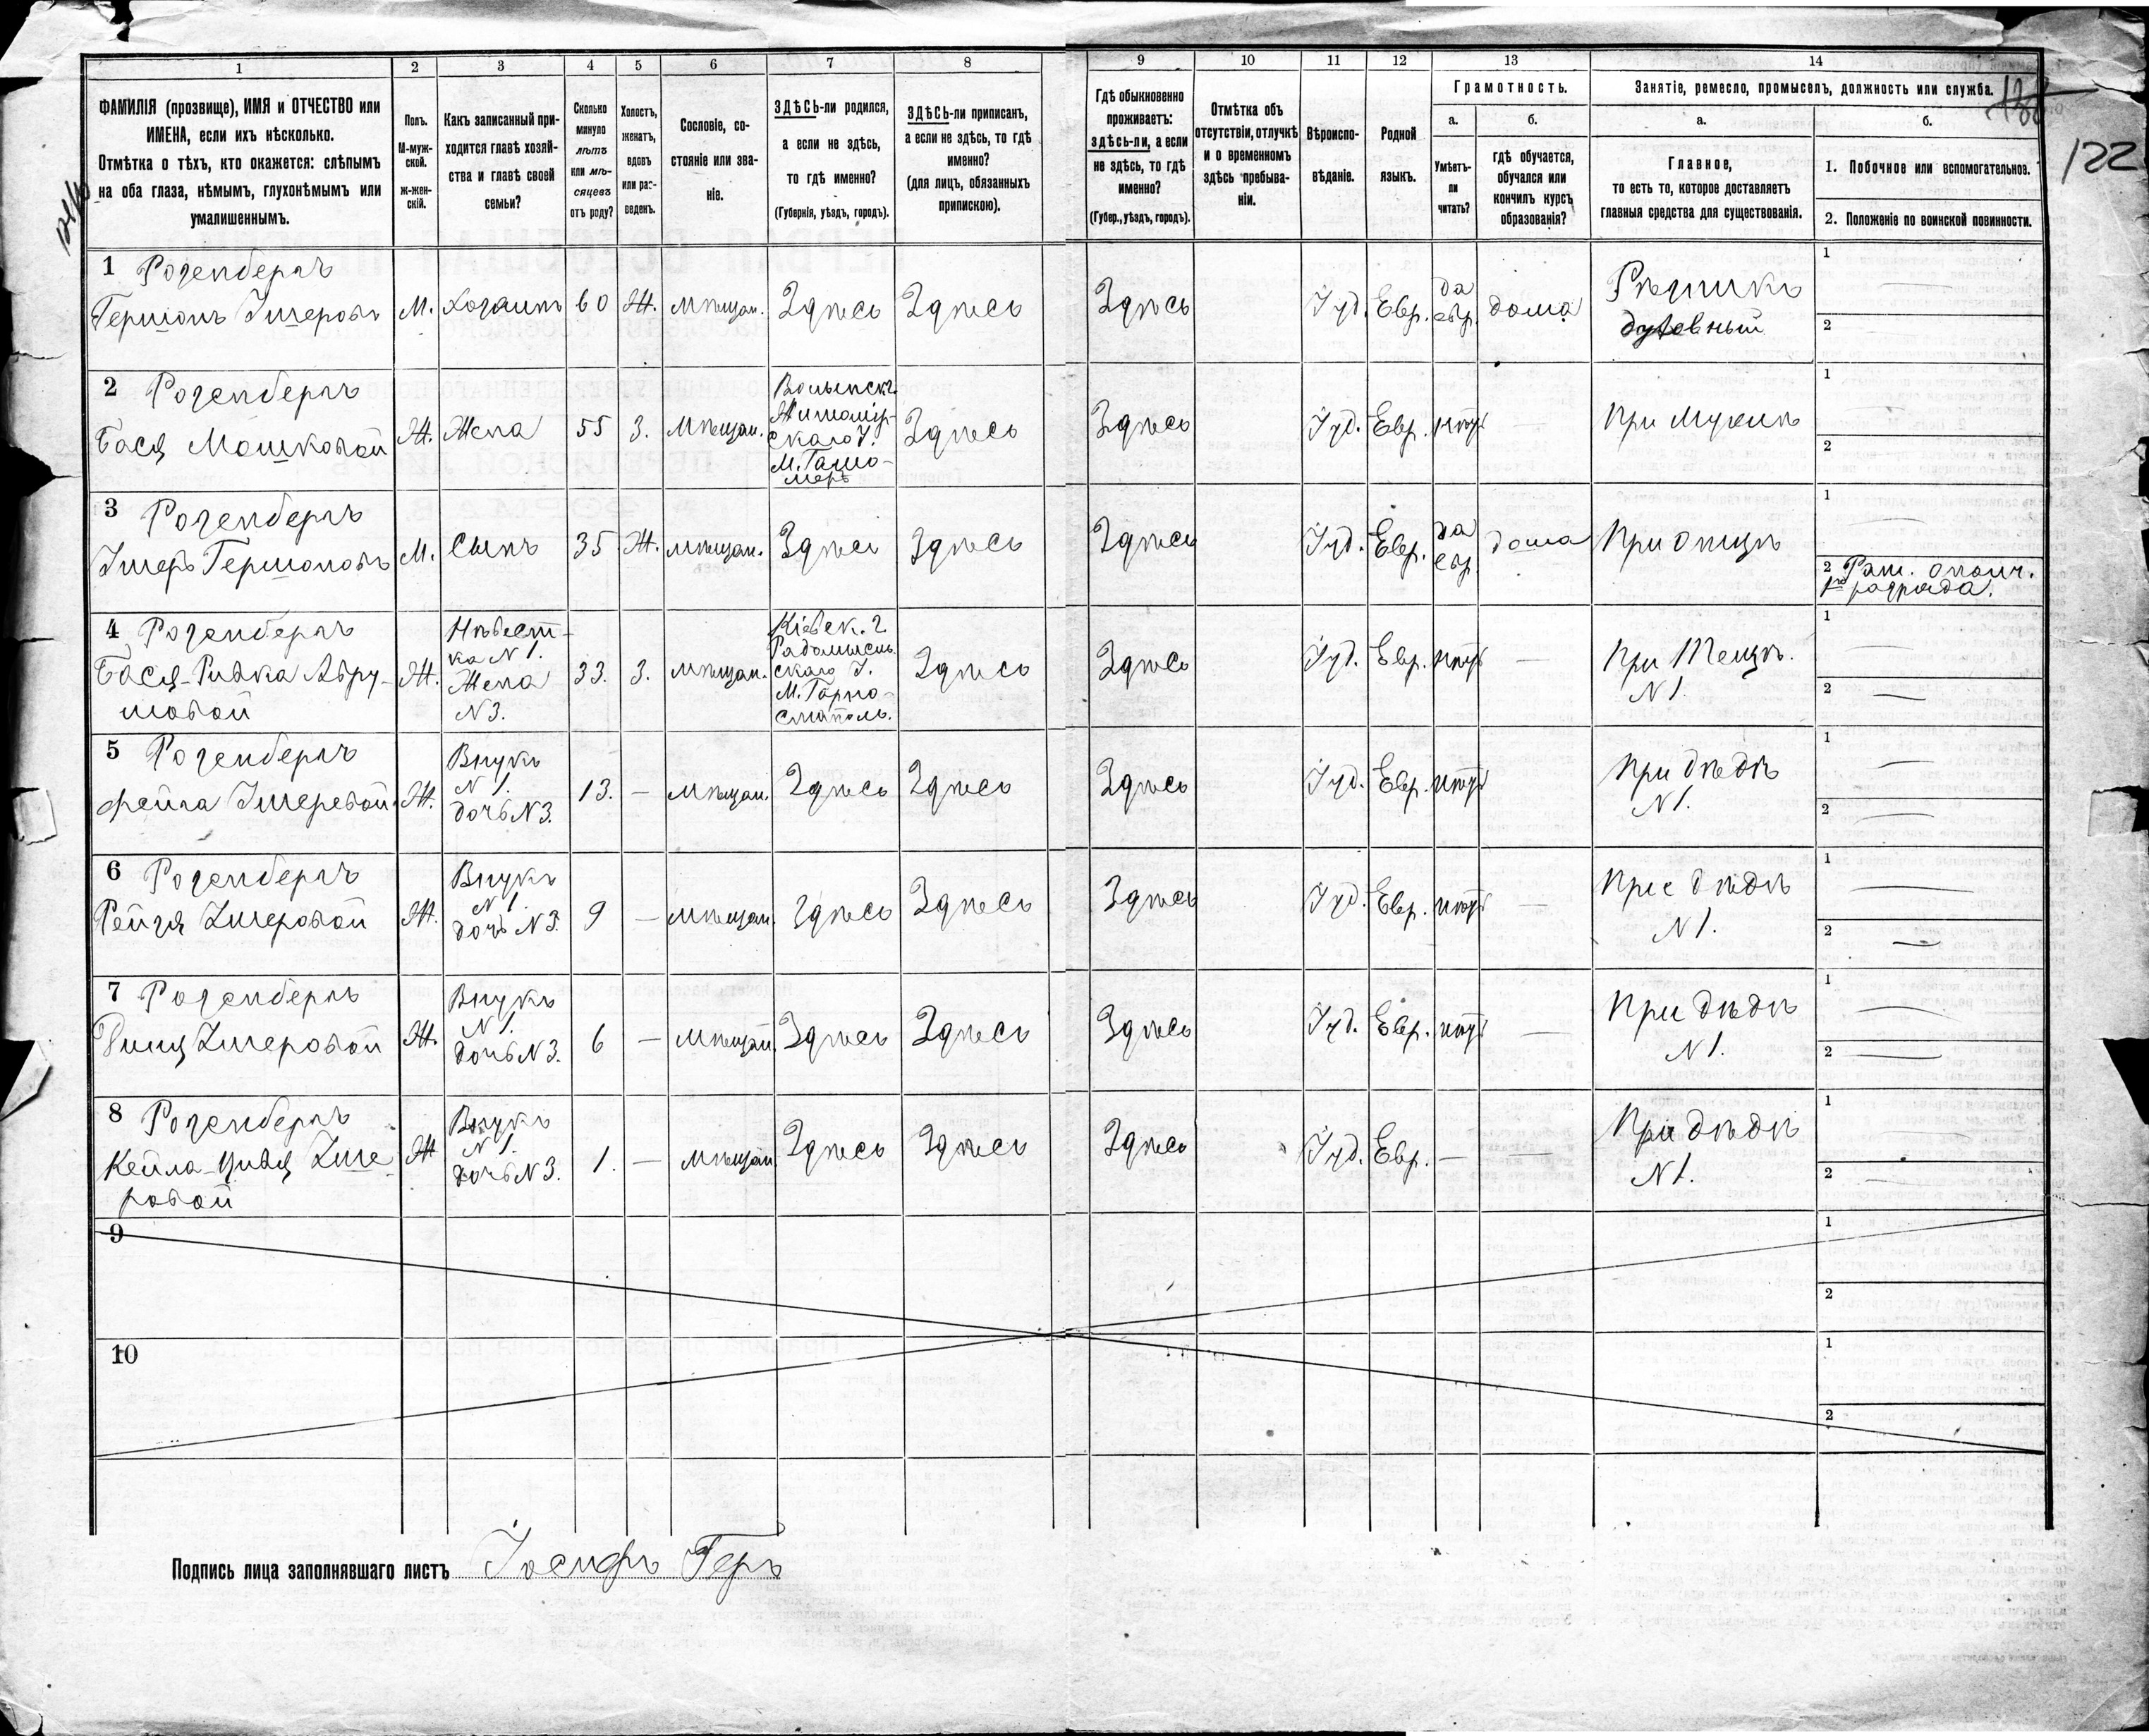 1 2 3 4 5 6 7 8 9 10 11 12 13 14
ФАМИЛІЯ (прозвище), ИМЯ и ОТЧЕСТВО или
ИМЕНА, если ихъ нѣсколько.
Отмѣтка о тѣхъ, кто окажется: слѣпымъ
на оба глаза, нѣмымъ, глухонѣмымъ или
умалишеннымъ.
Полъ.
М-муж-
ской.
ж-жен-
скій.
Какъ записанный при-
ходится главѣ хозяй-
ства и главѣ своей
семьи?
Сколько
минуло
лѣтъ
или мѣ-
сяцевъ
отъ роду?
Холостъ,
женатъ,
вдовъ
или раз-
веденъ.
Сословіе, со-
стояніе или зва-
ніе.
ЗДѢСЬ-ли родился,
а если не здѣсь,
то гдѣ именно?
(Губернія, уѣздъ, городъ).
ЗДѢСЬ-ли приписанъ,
а если не здѣсь, то гдѣ
именно?
(для лицъ, обязанныхъ
припискою).
Гдѣ обыкновенно
проживаетъ:
здѣсь-ли, а если
не здѣсь, то гдѣ
именно?
(Губер., уѣздъ, городъ).
Отмѣтка объ
отсутствіи, отлучкѣ
и о временномъ
здѣсь пребыва-
ніи.
Вѣроиспо-
вѣданіе.
Родной
языкъ.
Грамотность.
а.
Умѣетъ-
ли
читать?
б.
гдѣ обучается,
обучался или
кончилъ курсъ
образованія?
Занятіе, ремесло, промыселъ, должность или служба.
а.
Главное,
то есть то, которое доставляетъ
главныя средства для существованія.
б.
1. Побочное или вспомогательное.
2. Положеніе по воинской повинности.
122
1 Розенбергъ
Гершонъ Ишеровъ М. Хозяинъ 60 Ж. Мѣщан. Здѣсь Здѣсь Здѣсь Іуд. Евр. да евр. дома Рѣзникъ
духовный
1
2
2 Розенбергъ
Бася Мошковой Ж. Жена 55 З. Мѣщан. Волынск.
Житомір-
скаго У.
М.
Здѣсь Здѣсь Іуд. Евр. нѣтъ — При Мужѣ
1
2
3 Розенбергъ
Ишеръ Гершоновъ М. Сынъ 35 Ж. Мѣщан. Здѣсь Здѣсь Здѣсь Іуд. Евр. да евр. дома При Отцѣ
1
2 Рат. ополч.
1го разряда.
4 Розенбергъ
Бася-Ривка Абру-
мовой Ж. Невест-
ка N 1.
Жена
N 3.
33. З. Мѣщан. Кіевск. г.
Радомысль-
скаго У.
М. Горно-
стаполь.
Здѣсь Здѣсь Іуд. Евр. нѣтъ — При Тещѣ.
N 1.
1
2 —
5 Розенбергъ
Фейга Ишеревой Ж. Внукъ
N 1.
дочь N 3.
13. — Мѣщан. Здѣсь Здѣсь Здѣсь Іуд. Евр. нѣтъ При дѣдѣ
N 1.
1 —
2 —
6 Розенбергъ
Рейзя Ишеровой Ж. Внукъ
N 1
дочь N 3.
9 — Мѣщан. Здѣсь Здѣсь Здѣсь Іуд. Евр. нѣтъ — При дѣдѣ
N 1.
1 —
2 —
7 Розенбергъ
Ишеровой Ж. Внукъ
N 1.
дочь N 3.
6 — Мѣщан. Здѣсь Здѣсь Здѣсь Іуд. Евр. нѣтъ — При дѣдѣ
N 1.
1 —
2 —
8 Розенбергъ
Кейла-Цивя Ише-
ровой Ж Внукъ
N 1.
дочь N 3.
1. — Мѣщан. Здѣсь Здѣсь Здѣсь Іуд. Евр. — — При дѣдѣ
N 1.
1 —
2 —
9
1
2
10
1
2
Подпись лица заполнявшаго листъ Іосифъ Геръ